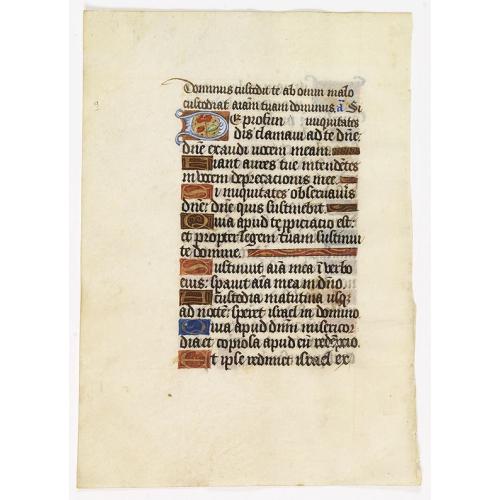 Dominus custodit te ab omni malo
custodiat aiam tuam dominus. a Si
De profun iniquitates
dis clamaui ad te dne:
dne exaudi uocem meam.
Fiant aures tue intendetes
in uocem deprecacionis mee.
Si iniquitates obseruaueris
dne: dne quis sustinebit.
Quia apud te ppiciacio est:
et propter legem tuam sustinui
te domine.
Sustinuit aia mea i verbo
eius: sperauit aia mea in dno.
A custodia matutina usq;
ad nocte: speret israel in domino
Quia apud dnm misericor
dia et copiosa apud eu redepcio.
Et ipse redimet israel ex